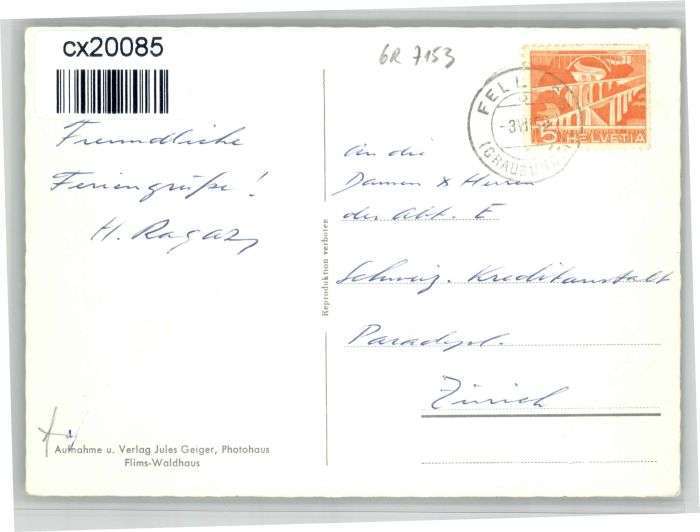 cx20085
GR 7153
FEL
(GRAUBÜN
5 HELVETIA
Freundliche
Feriengrüße!
H. Ragaz
An die
Damen & Herren
der Abt. E
Schweiz. Kreditanstalt
Paradepl.
Zürich
Reproduktion verboten
Aufnahme u. Verlag Jules Geiger, Photohaus
Flims-Waldhaus